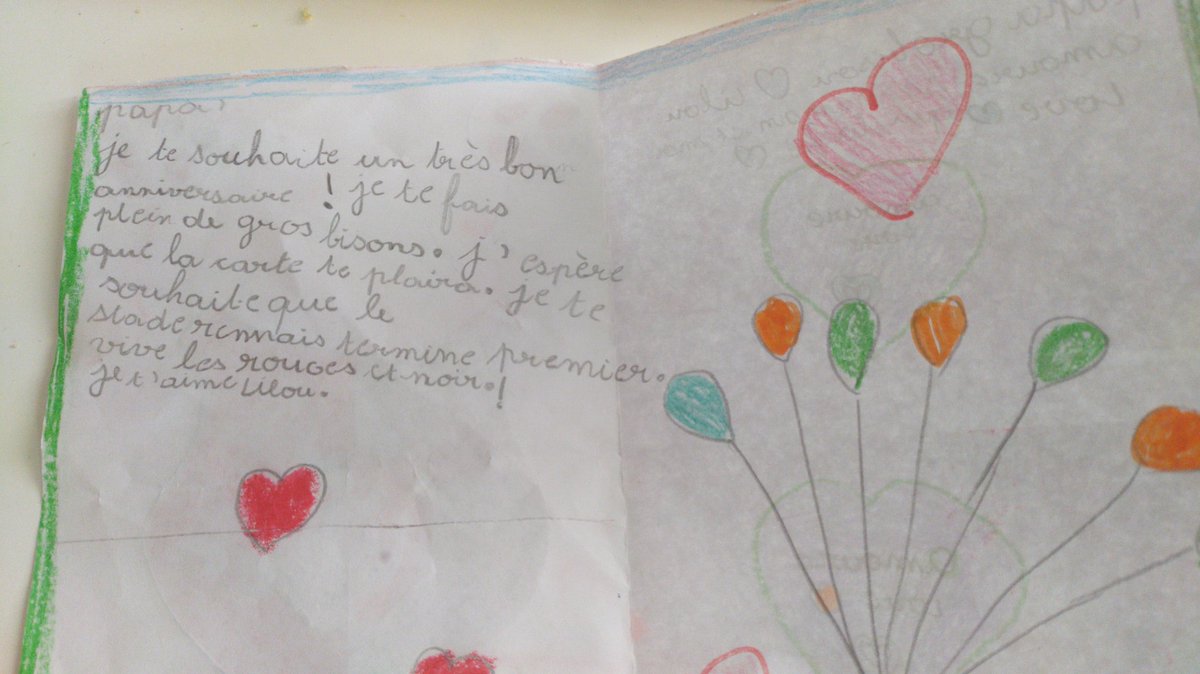 papa,
je te souhaite un très bon
anniversaire ! je te fais
plein de gros bisons. j'espère
que la carte te plaira. je te
souhaite que le
stade rennais termine premier.
vive les rouges et noir.!
je t'aime Lilou.
papa
amour
Love
Lilou